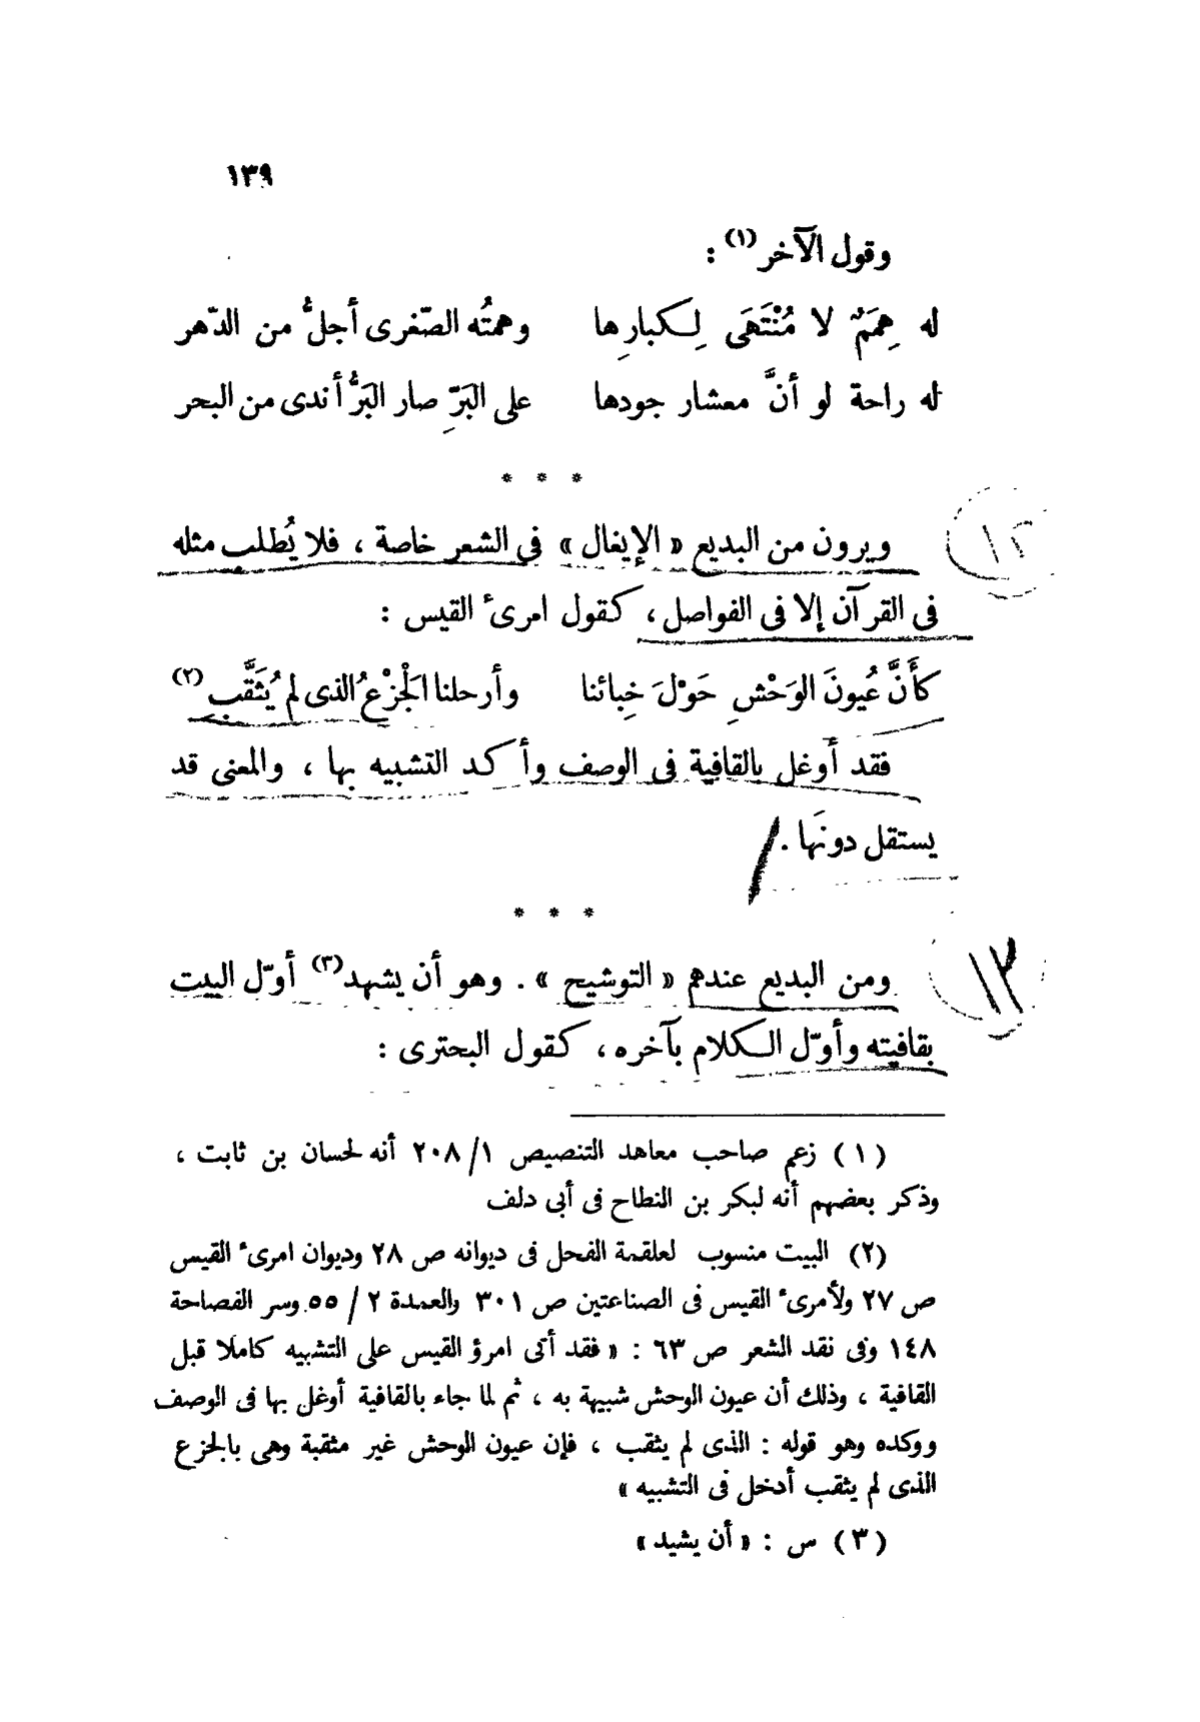 ١٣٩
وقول الآخر (١) :
له هِمَمٌ لا مُنْتَهَى لِكبارِها وهمتُه الصّغرى أجلُّ من الدّهر
له راحة لو أنَّ معشار جودها على البَرِّ صار البَرُّ أندى من البحر
* * *
١٢
ويرون من البديع « الإيغال » فى الشعر خاصة ، فلا يُطلب مثله
فى القرآن إلا فى الفواصل ، كقول امرئ القيس :
كأَنَّ عُيونَ الوَحْشِ حَوْلَ خِبائنا وأرحلنا الجَزْعُ الذى لم يُثَقَّبِ (٢)
فقد أوغل بالقافية فى الوصف وأكد التشبيه بها ، والمعنى قد
يستقل دونَها .
* * *
١٣
ومن البديع عندهم « التوشيح » . وهو أن يشهد (٣) أوّل البيت
بقافيته وأوّل الكلام بآخره ، كقول البحترى :
(١) زعم صاحب معاهد التنصيص ١/ ٢٠٨ أنه لحسان بن ثابت ،
وذكر بعضهم أنه لبكر بن النطاح فى أبى دلف
(٢) البيت منسوب لعلقمة الفحل فى ديوانه ص ٢٨ وديوان امرئ القيس
ص ٢٧ ولأمرئ القيس فى الصناعتين ص ٣٠١ والعمدة ٢ / ٥٥ وسر الفصاحة
١٤٨ وفى نقد الشعر ص ٦٣ : « فقد أتى امرؤ القيس على التشبيه كاملا قبل
القافية ، وذلك أن عيون الوحش شبيهة به ، ثم لما جاء بالقافية أوغل بها فى الوصف
ووكده وهو قوله : الذى لم يثقب ، فإن عيون الوحش غير مثقبة وهى بالجزع
الذى لم يثقب أدخل فى التشبيه »
(٣) س : « أن يشيد »